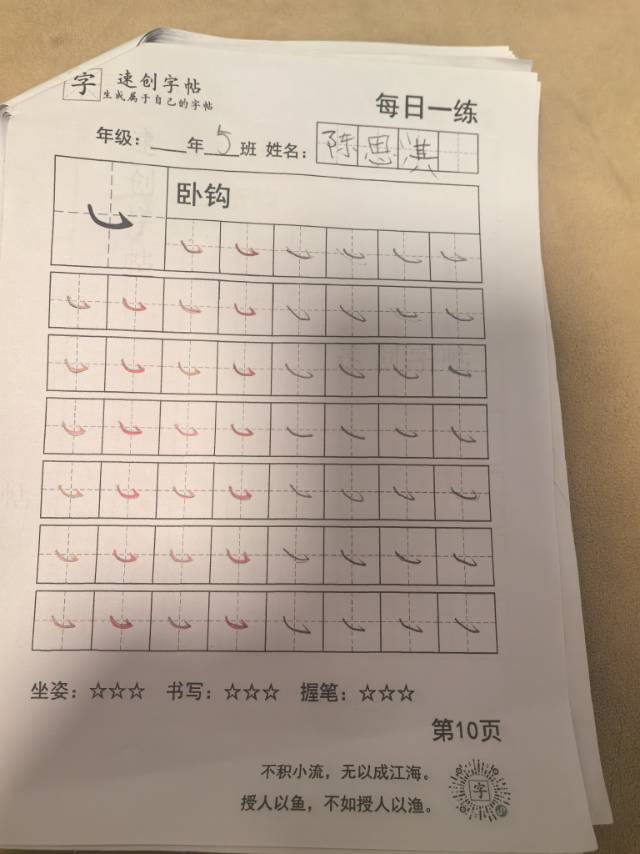 字 速创字帖
生成属于自己的字帖
每日一练
年级：___年 5 班 姓名： 陈思淇
卧钩
坐姿：☆☆☆ 书写：☆☆☆ 握笔：☆☆☆
第10页
不积小流，无以成江海。
授人以鱼，不如授人以渔。
字